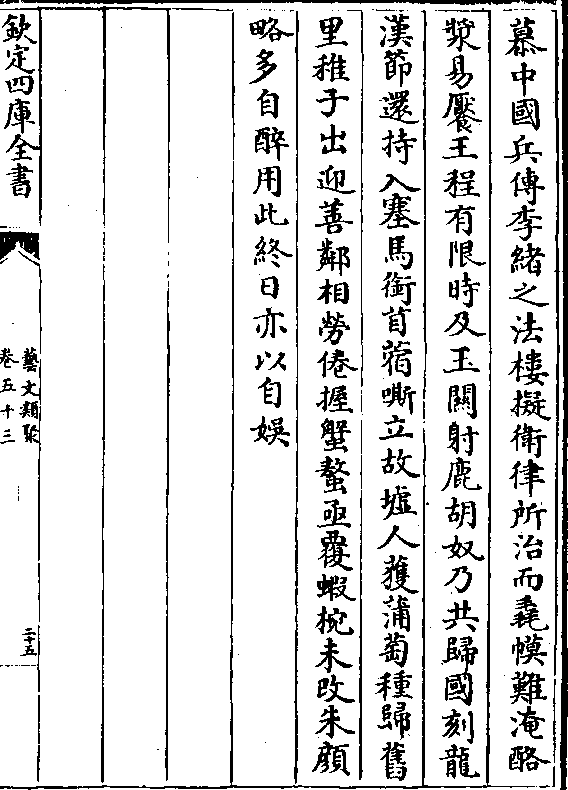 慕中國兵傳李緒之法樓擬衛律所治而毳幙難淹酪
漿易饜王程有限時及玉關射鹿胡奴乃共歸國刻龍
漢節還持入塞馬銜苜蓿嘶立故墟人獲蒲萄種歸舊
里稚子出迎善鄰相勞倦握蟹螯亟覆蝦椀未改朱顔
略多自醉用此終日亦以自娛
欽定四庫全書
藝文類聚
卷五十三
二十五